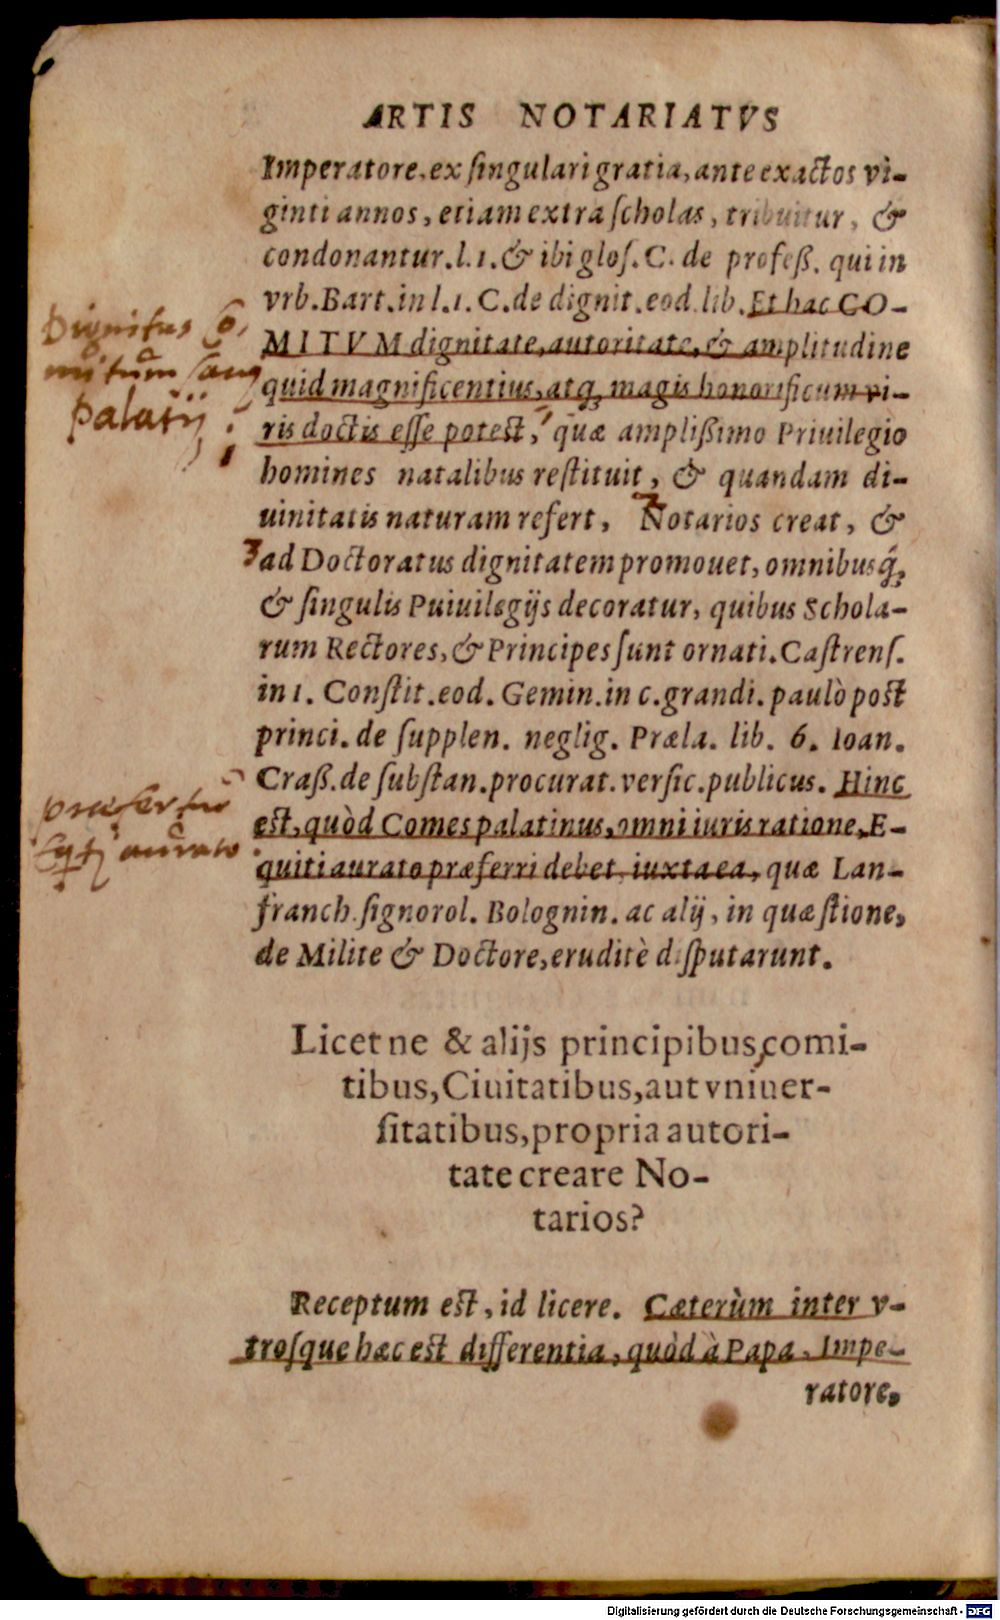 ARTIS NOTARIATVS
Imperatore, ex ſingulari gratia, ante exactos vi-
ginti annos, etiam extra ſcholas, tribuitur, &
condonantur. l. 1. & ibi gloſ. C. de profeß. qui in
vrb. Bart. in l. 1. C. de dignit. eod. lib. Et hac CO-
MITVM dignitate, autoritate, & amplitudine
quid magnificentius, atq; magis honorificum vi-
ris doctis eſſe potest, quæ amplißimo Priuilegio
homines natalibus reſtituit, & quandam di-
uinitatis naturam refert, Notarios creat, &
ad Doctoratus dignitatem promouet, omnibusq́;
& ſingulis Puiuilegijs decoratur, quibus Schola-
rum Rectores, & Principes ſunt ornati. Caſtrenſ.
in 1. Conſtit. eod. Gemin. in c. grandi. paulò post
princi. de ſupplen. neglig. Præla. lib. 6. Ioan.
Craß. de ſubſtan. procurat. verſic. publicus. Hinc
est, quòd Comes palatinus, omni iuris ratione, E-
quiti aurato præferri debet, iuxta ea, quæ Lan-
franch. ſignorol. Bolognin. ac alij, in quæſtione,
de Milite & Doctore, eruditè diſputarunt.
Dignitas Co-
mitum
palatij
præfertur
aurato
Licet ne & alijs principibus, comi-
tibus, Ciuitatibus, aut vniuer-
ſitatibus, propria autori-
tate creare No-
tarios?
Receptum est, id licere. Cæterùm inter v-
troſque hæc est differentia, quòd à Papa, Impe-
ratore,
Digitalisierung gefördert durch die Deutsche Forschungsgemeinschaft - DFG